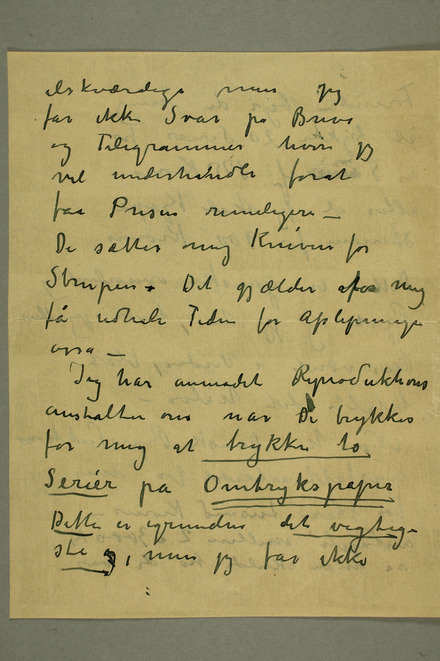 elskværdige men jeg
får ikke Svar på Breve
og Telegrammer hvori jeg
vil underhandle forat
faa Prisen rimeligere –
De sætter mig Kniven for
Strupen. Det gjælder for mig
få udhale Tiden for
også –
Jeg har anmodet Reproduktions
anstalten om når De trykkes
for mig at trykke to
Serier på Omtrykspapir
Dette er igrunden det vigtig-
ste, men jeg får ikke